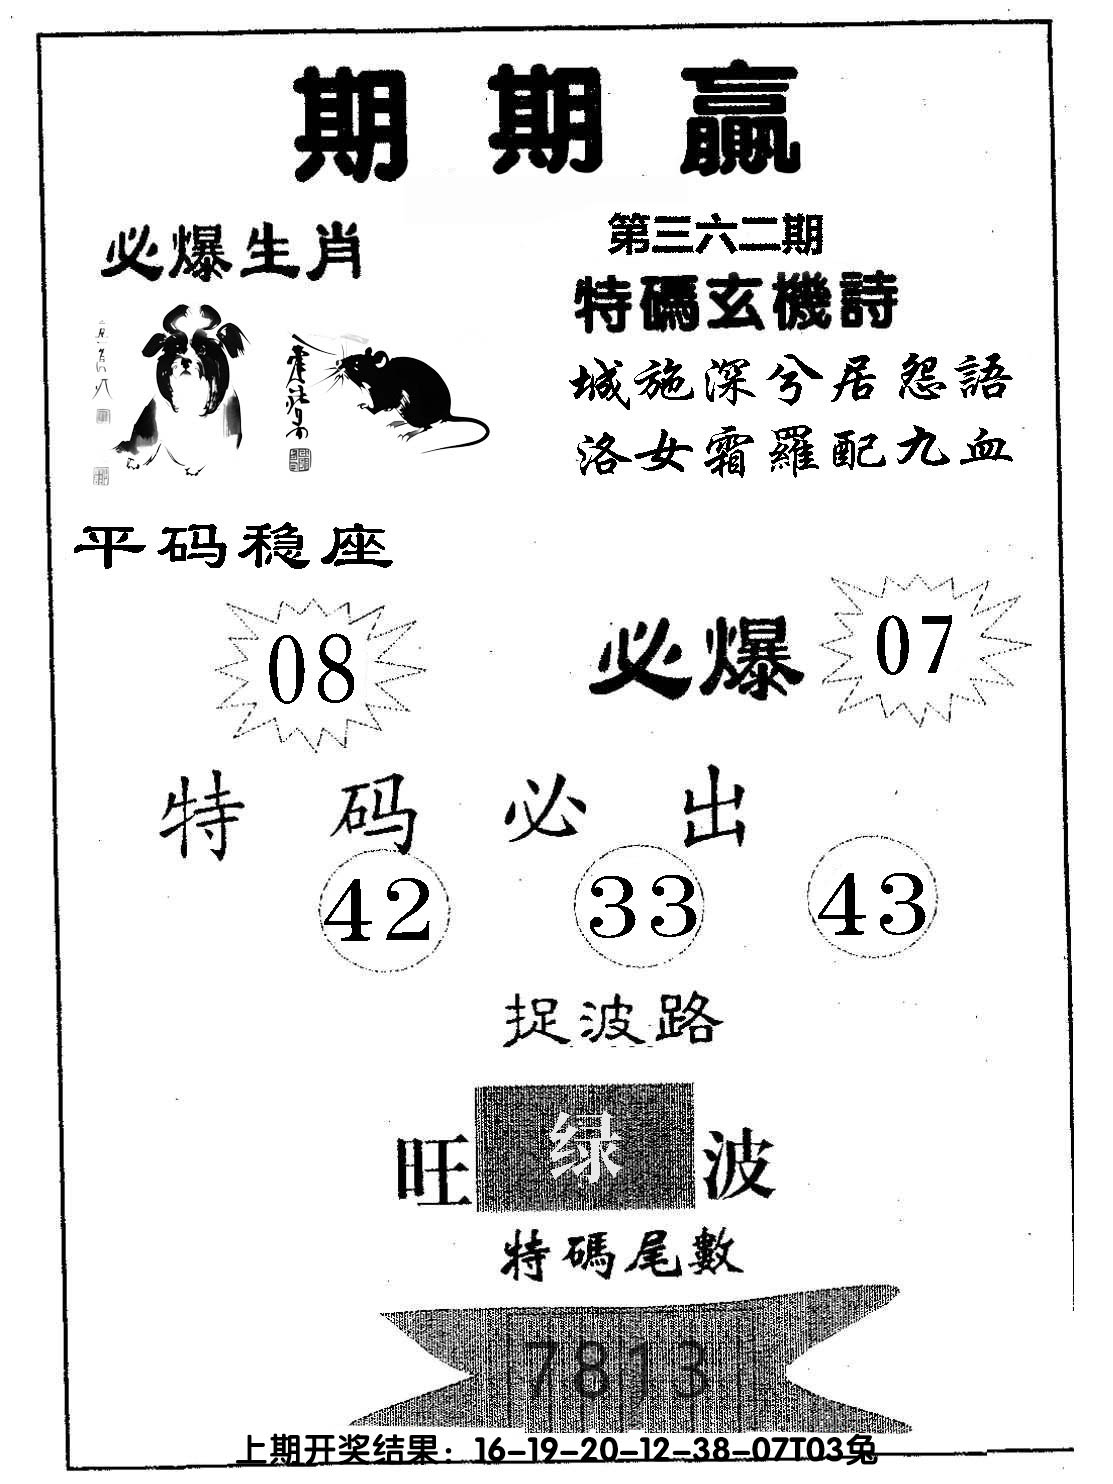 期期贏
第三六二期
必爆生肖
特碼玄機詩
城施深兮居怨語
洛女霜羅配九血
平码稳座
08
必爆 07
特码必出
42 33 43
捉波路
旺 绿 波
特碼尾數
7813
上期开奖结果：16-19-20-12-38-07T03兔